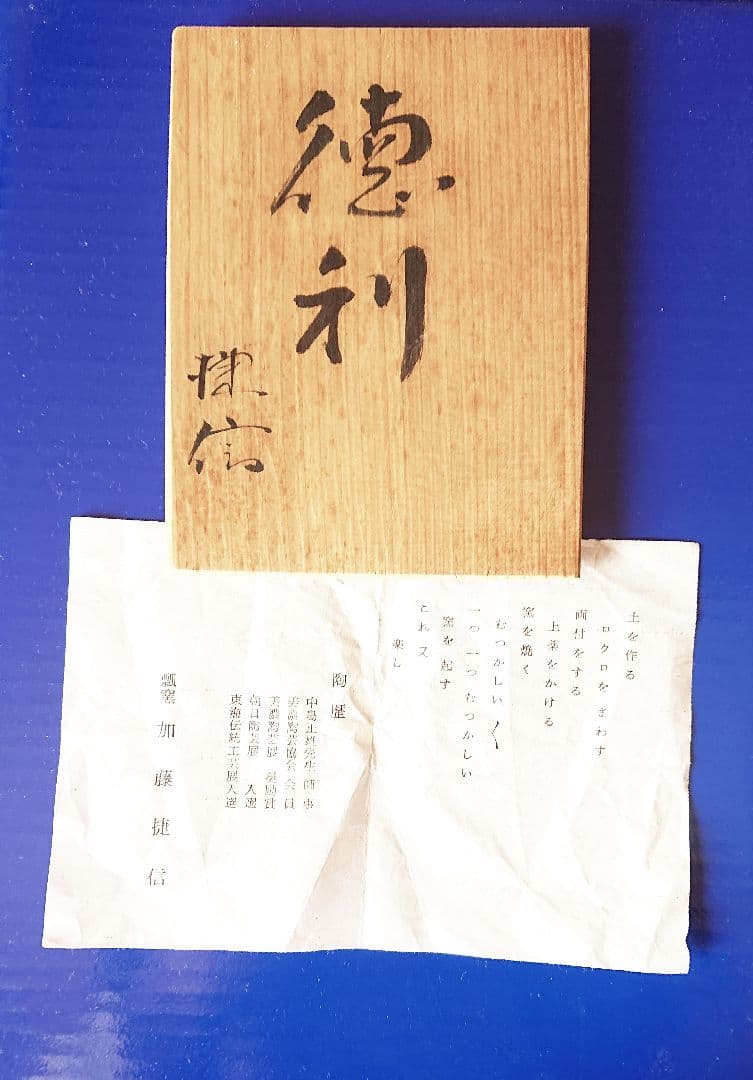 徳利
捷信
土を作る
ロクロを まわす
画付をする
上薬をかける
窯を焼く
むつかしい〱
一つ一つ むつかしい
窯を 起す
これ又
楽し
陶歴
中島正雄先生 師事
美濃陶芸協会 会員
美濃陶芸展 奨励賞
朝日陶芸展 入選
東海伝統工芸展入選
瓢窯 加藤捷信